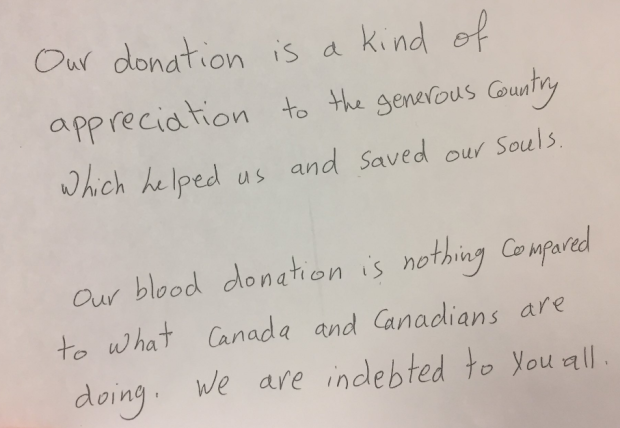 Our donation is a kind of
appreciation to the generous Country
which helped us and saved our souls.
Our blood donation is nothing Compared
to what Canada and Canadians are
doing. We are indebted to you all.